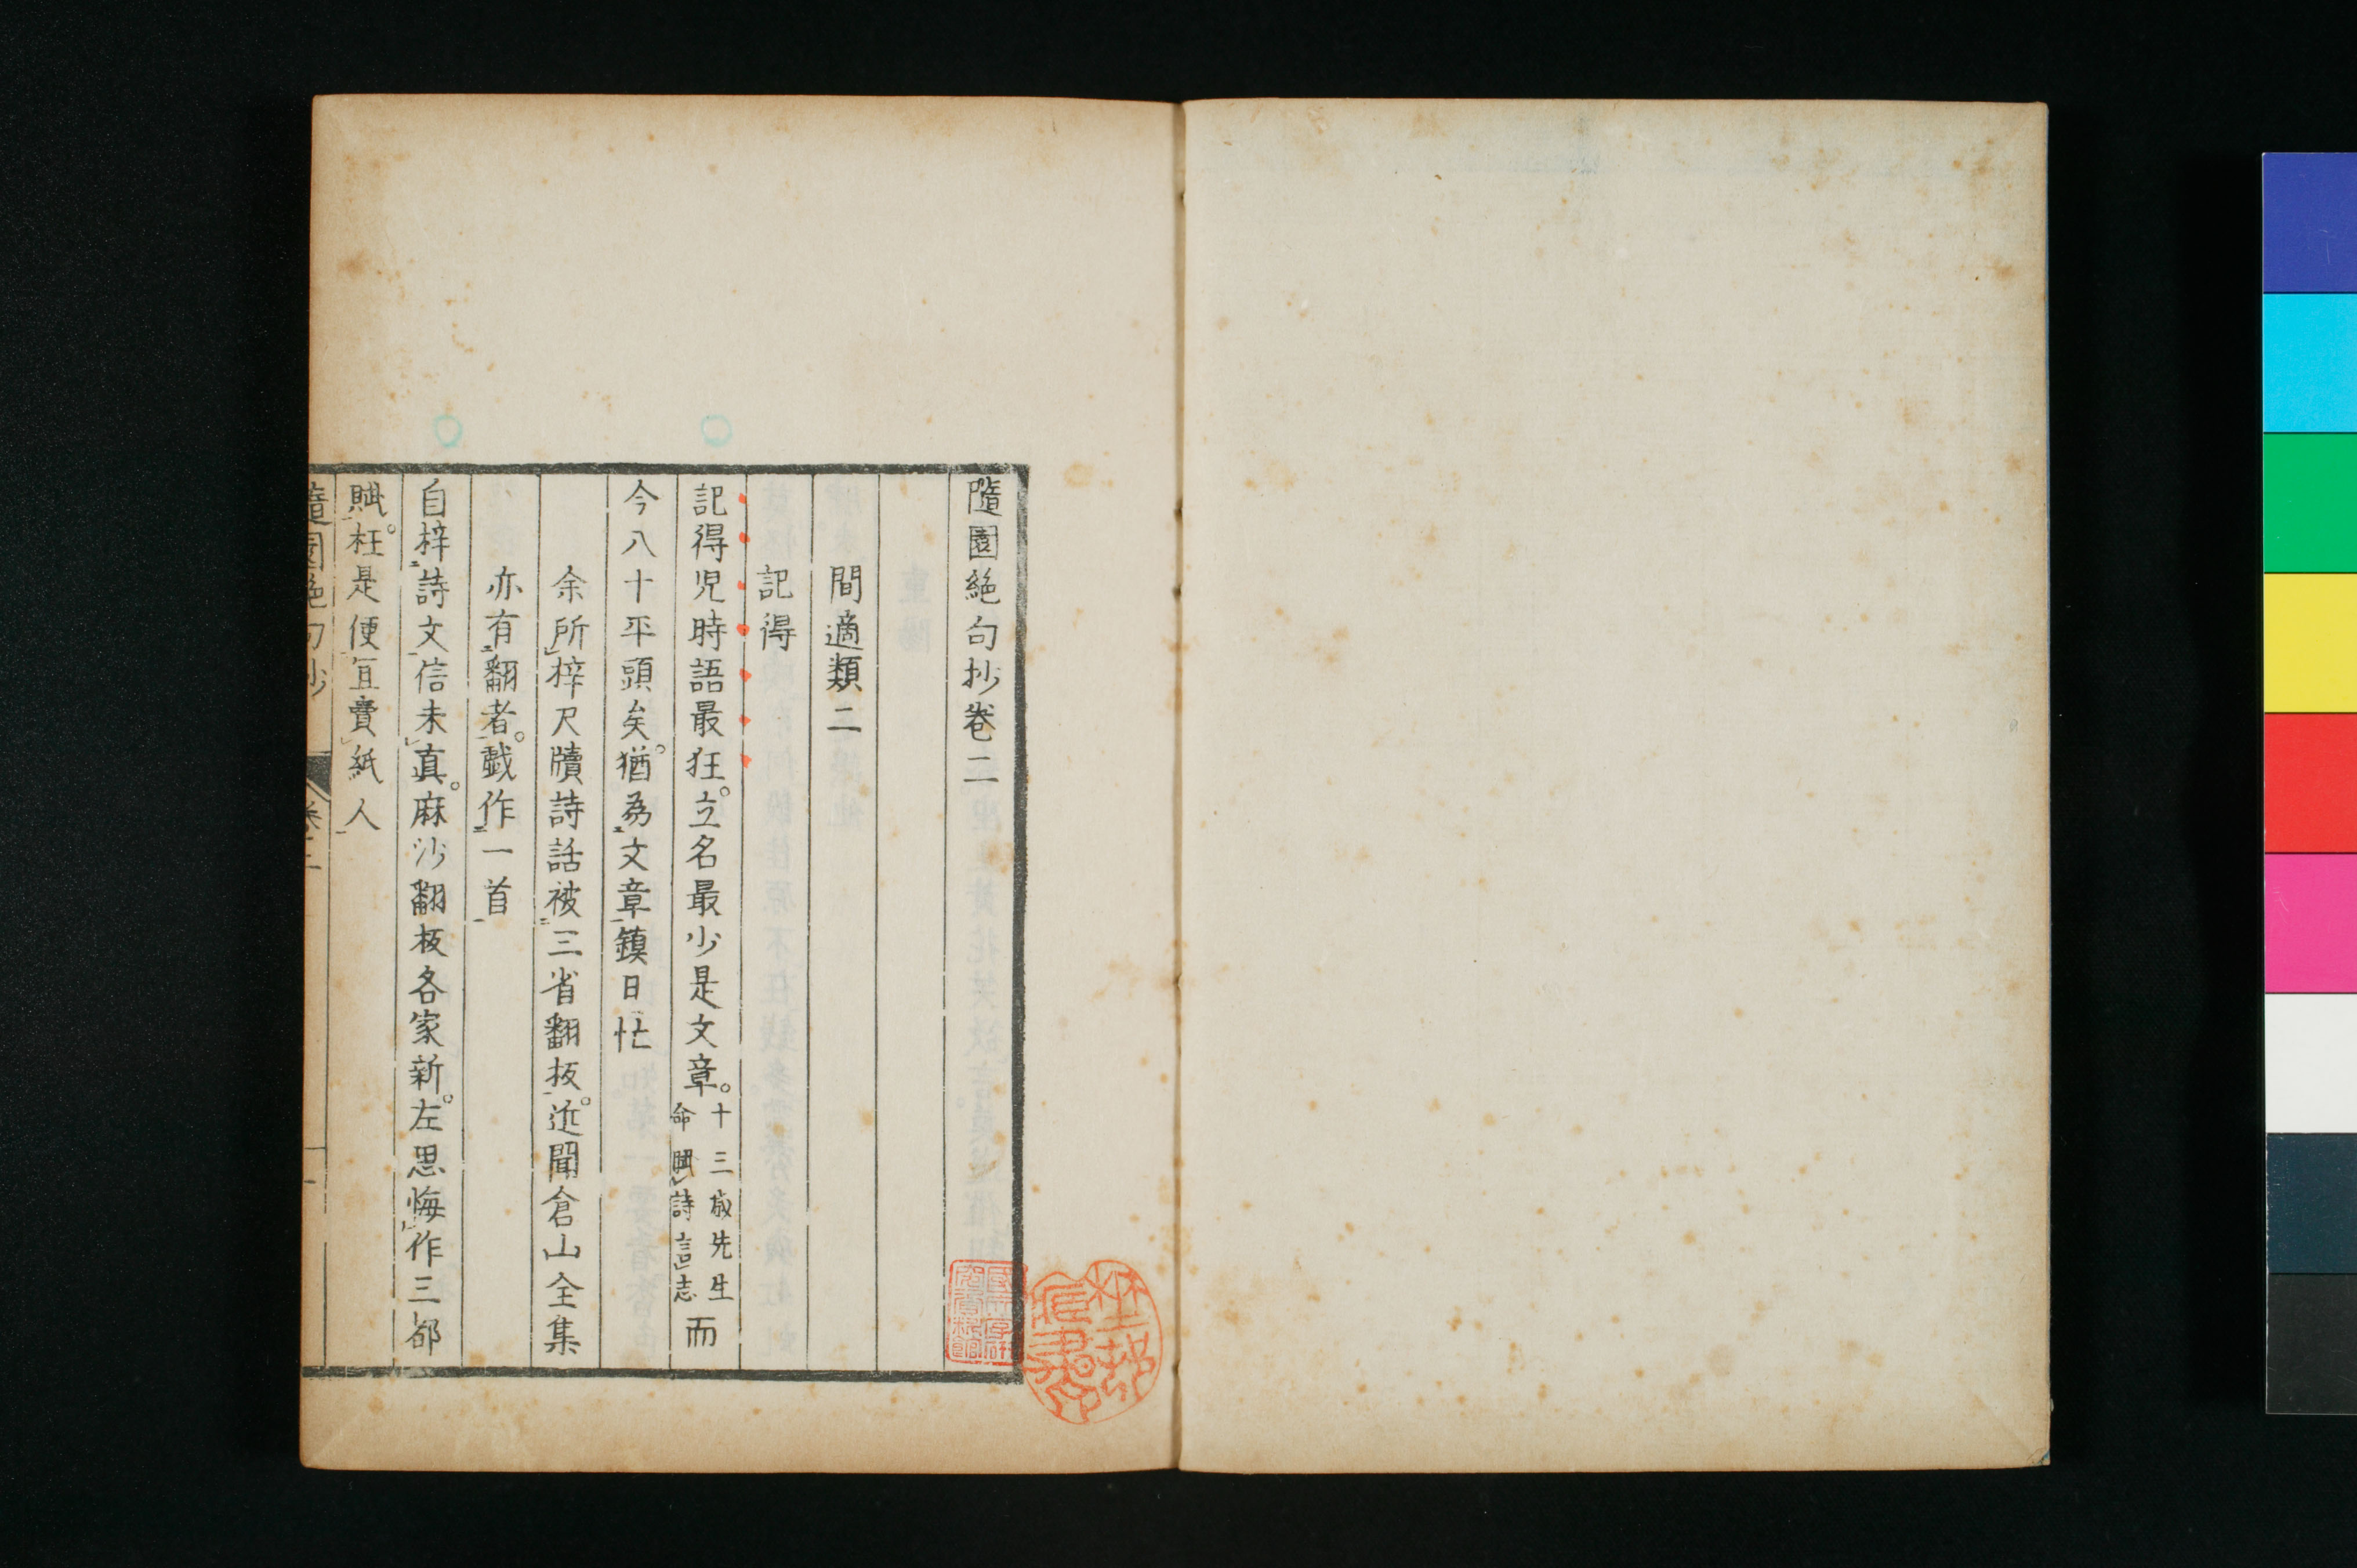 隨園絶句抄卷二
間適類二
記得
記得児時語最狂。立名最少是文章。十三歳先生命賦詩言志而
今八十平頭矣。猶為文章鎮日忙
余所梓尺牘詩話被三省翻板。近聞倉山全集
亦有翻者。戯作一首
自梓詩文信未真。麻沙翻板各家新。左思悔作三都
賦。枉是便宜費紙人
隨園絶句抄 卷二 一